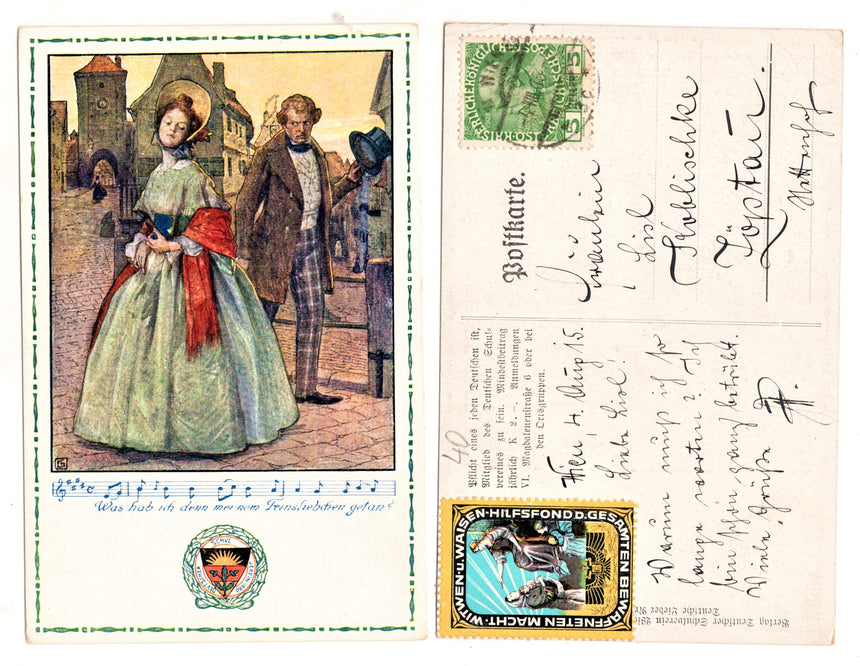 Was hab ich denn meinem Feinsliebchen getan?
SCHUL
VEREIN
DEUTSCHER
KAISERLICHE KÖNIGLICHE ÖSTERREICHISCHE POST
5
5
Postkarte.
Fräulein
Lisl
Koblischke
Zöptau.
Pflicht eines jeden Deutschen ist,
Mitglied des Deutschen Schul-
vereines zu sein. Mindestbeitrag
jährlich K 2.–. Anmeldungen
VI. Magdalenenstraße 6 oder bei
den Ortsgruppen.
40
Wien, 4. Aug 15.
Liebe Lisl!
Warum muß ich so
lange warten? Ich
bin schon ganz betrübt.
Viele Grüße
WITWEN-U.WAISEN-HILFSFOND D.GESAMTEN BEWAFFNETEN MACHT.
Verlag Deutscher Schulverein Wie
Deutsche Lieder Nr.